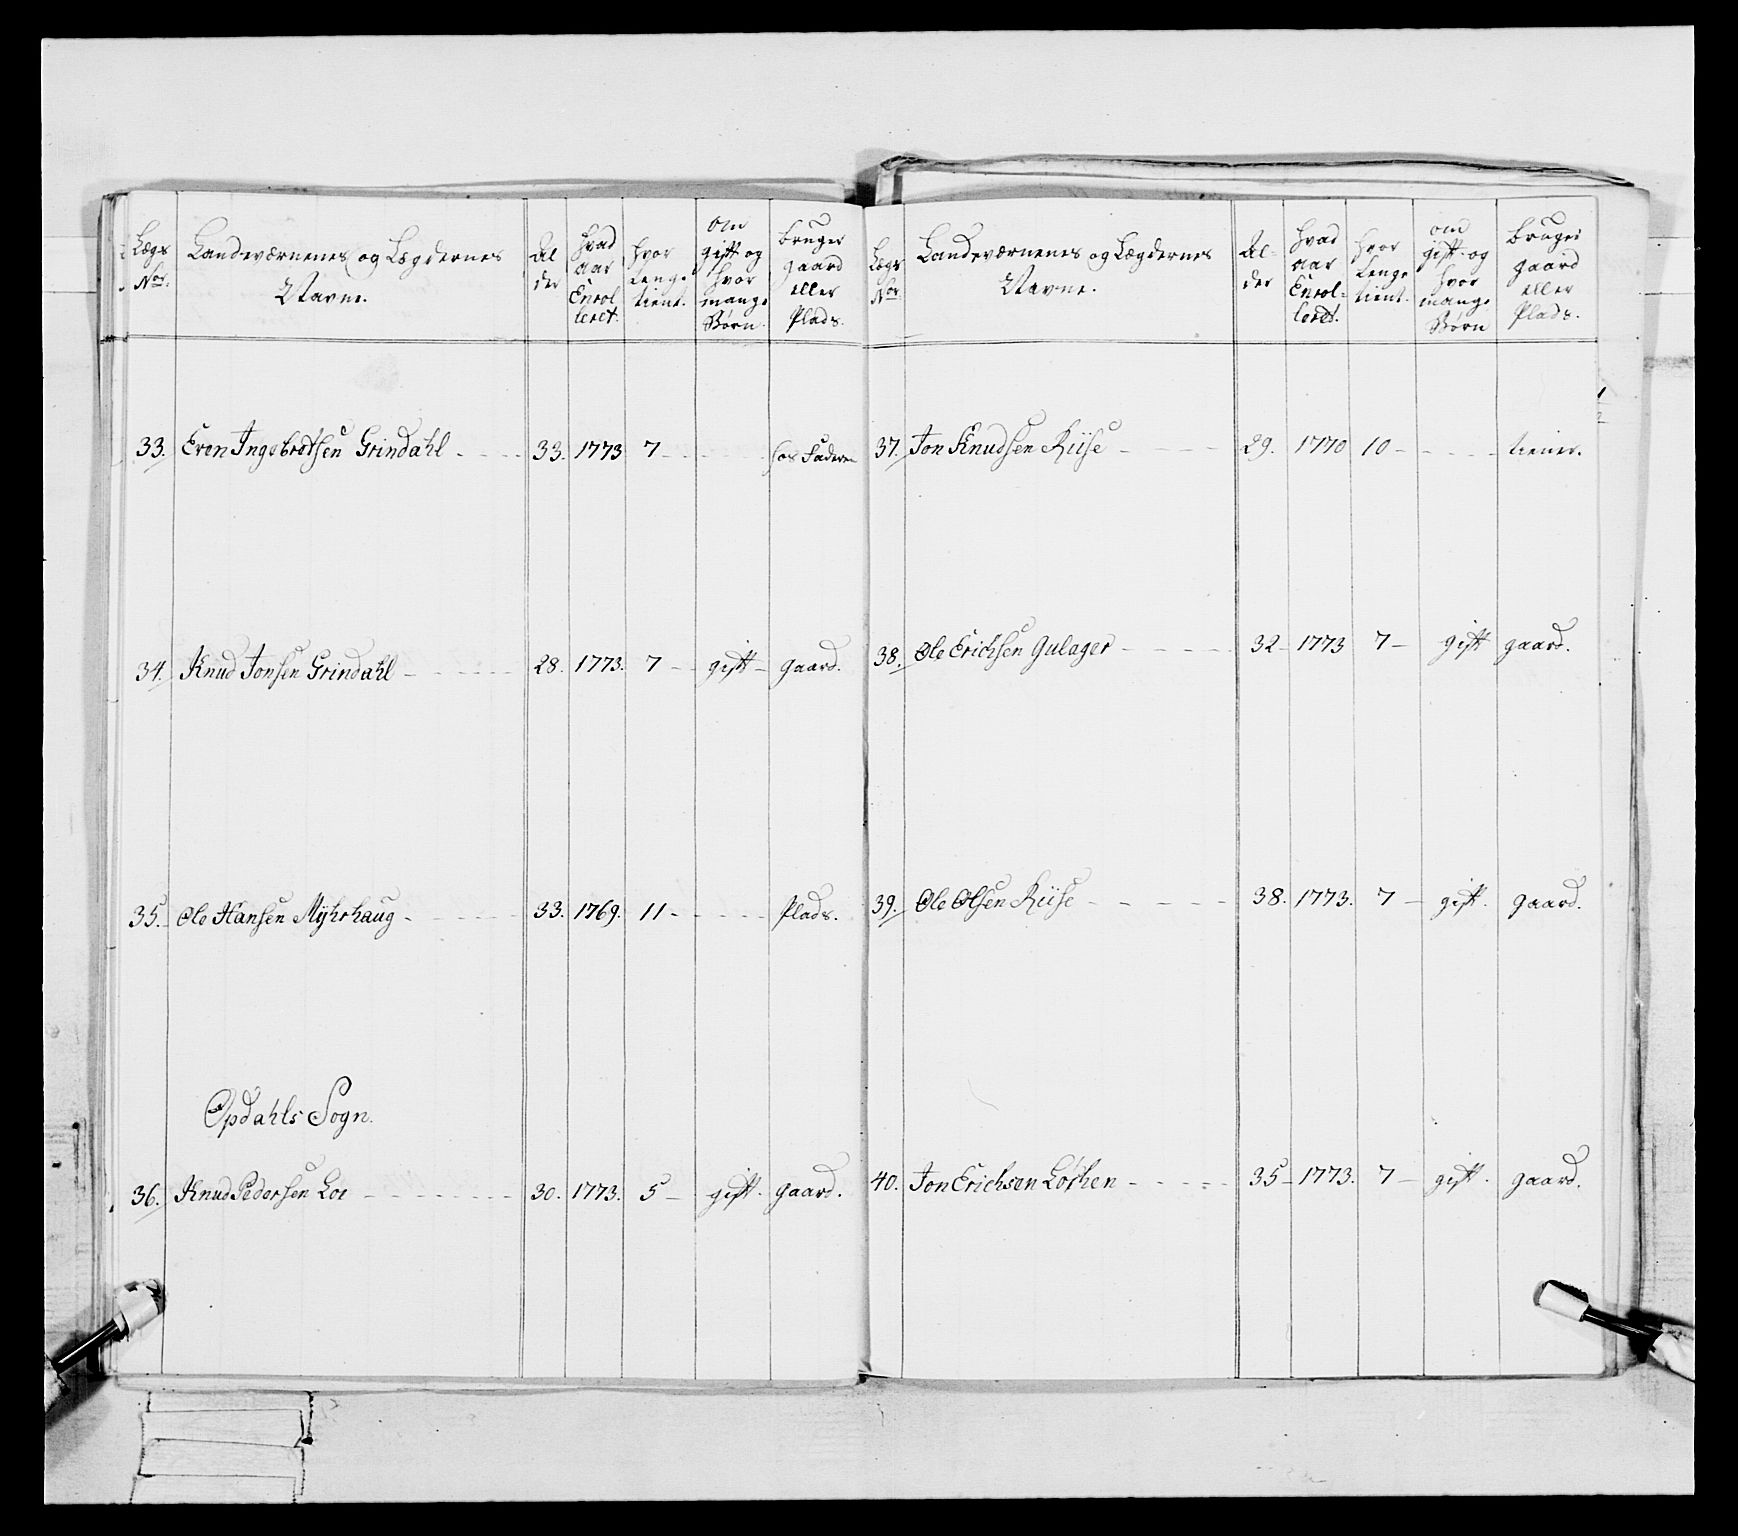 Lægs
Nor.
Landeværnenes og Lægdernes
Navne.
Al
der
hvad
aar
Enrol
leret.
hvor
lenge
tient.
om
gift og
hvor
mange
Børn.
bruger
gaard
eller
Plads.
33. Even Ingebretsen Grindahl - - - - 33. 1773 7 - - - - hos Faderen
34. Knud Jonsen Grindahl - - - - - 28. 1773. 7 - gift - gaard.
35. Ole Hansen Myhrhaug - - - - - 33. 1769. 11 - - - - - Plads.
Opdahls Sogn.
36. Knud Pedersen Loe - - - - - - - 30. 1773. 5 - gift. gaard.
Lægs
Nor
Landeværnenes og Lægdernes
Navne.
Al-
der
hvad
aar
Enrol-
leret.
hvor
lenge
tient.
om
gift og
hvor
mange
Børn
bruger
gaard
eller
Plads.
37. Jon Knudsen Riise - - - - 29. 1770 10 - - - - - tiener.
38. Ole Erichsen Gulager - - - - - 32 - 1773 7 - gift gaard.
39. Ole Olsen Riise - - - - - 38. 1773. 7 - gift. gaard.
40. Jon Erichsen Løkken - - - - - 35 - 1773. 7 - gift. gaard.